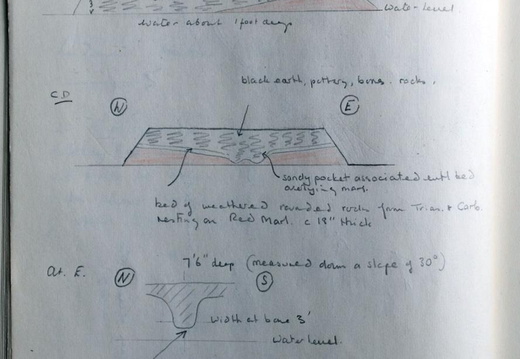 water level.
water about 1 foot deep
black earth, pottery, bones, rocks.
CD
N E
sandy pocket associated with bed
overlying marl.
bed of weathered rounded rocks from Trias. & Carb.
resting on Red Marl. c 18" thick
7'6" deep (measured down a slope of 30°)
At. E.
N S
width at base 3'
Water level.